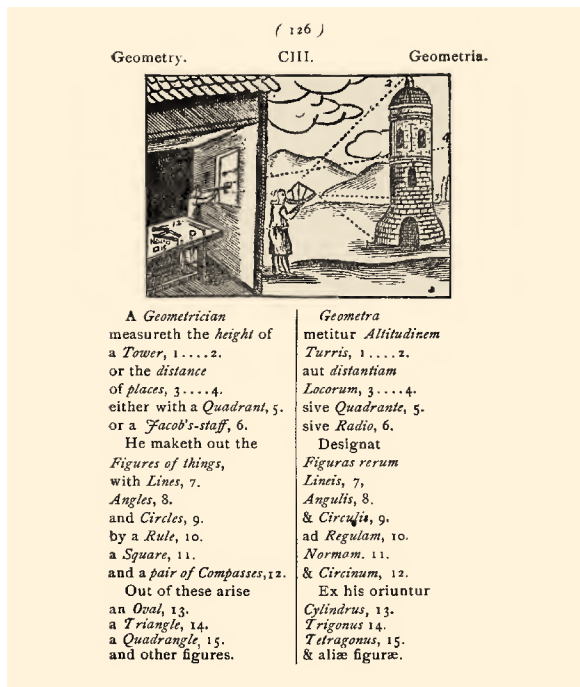 ( 126 )
Geometry. CIII. Geometria.
2
4
12
A Geometrician
measureth the height of
a Tower, 1....2.
or the distance
of places, 3....4.
either with a Quadrant, 5.
or a Jacob's-staff, 6.
He maketh out the
Figures of things,
with Lines, 7.
Angles, 8.
and Circles, 9.
by a Rule, 10.
a Square, 11.
and a pair of Compasses, 12.
Out of these arise
an Oval, 13.
a Triangle, 14.
a Quadrangle, 15.
and other figures.
Geometra
metitur Altitudinem
Turris, 1....2.
aut distantiam
Locorum, 3....4.
sive Quadrante, 5.
sive Radio, 6.
Designat
Figuras rerum
Lineis, 7,
Angulis, 8.
& Circulis, 9.
ad Regulam, 10.
Normam. 11.
& Circinum, 12.
Ex his oriuntur
Cylindrus, 13.
Trigonus 14.
Tetragonus, 15.
& aliæ figuræ.